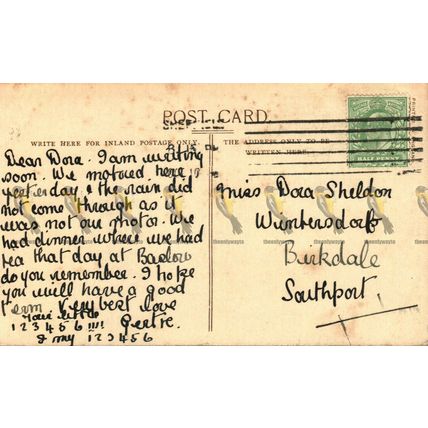 POST CARD.
WRITE HERE FOR INLAND POSTAGE ONLY.
THE ADDRESS ONLY TO BE
WRITTEN HERE.
HALF PENNY
Dear Dora. I am writing
soon. We motored here
yesterday & the rain did
not come through as it
was not our motor. We
had dinner where we had
tea that day at Baslow
do you remember. I hope
you will have a good
term Very best love
Your little
1 2 3 4 5 6 !!!
& my 1 2 3 4 5 6
Miss Dora Sheldon
Birkdale
Southport
theonlywayto
theonlywayto
theonlywayto
theonlywayto